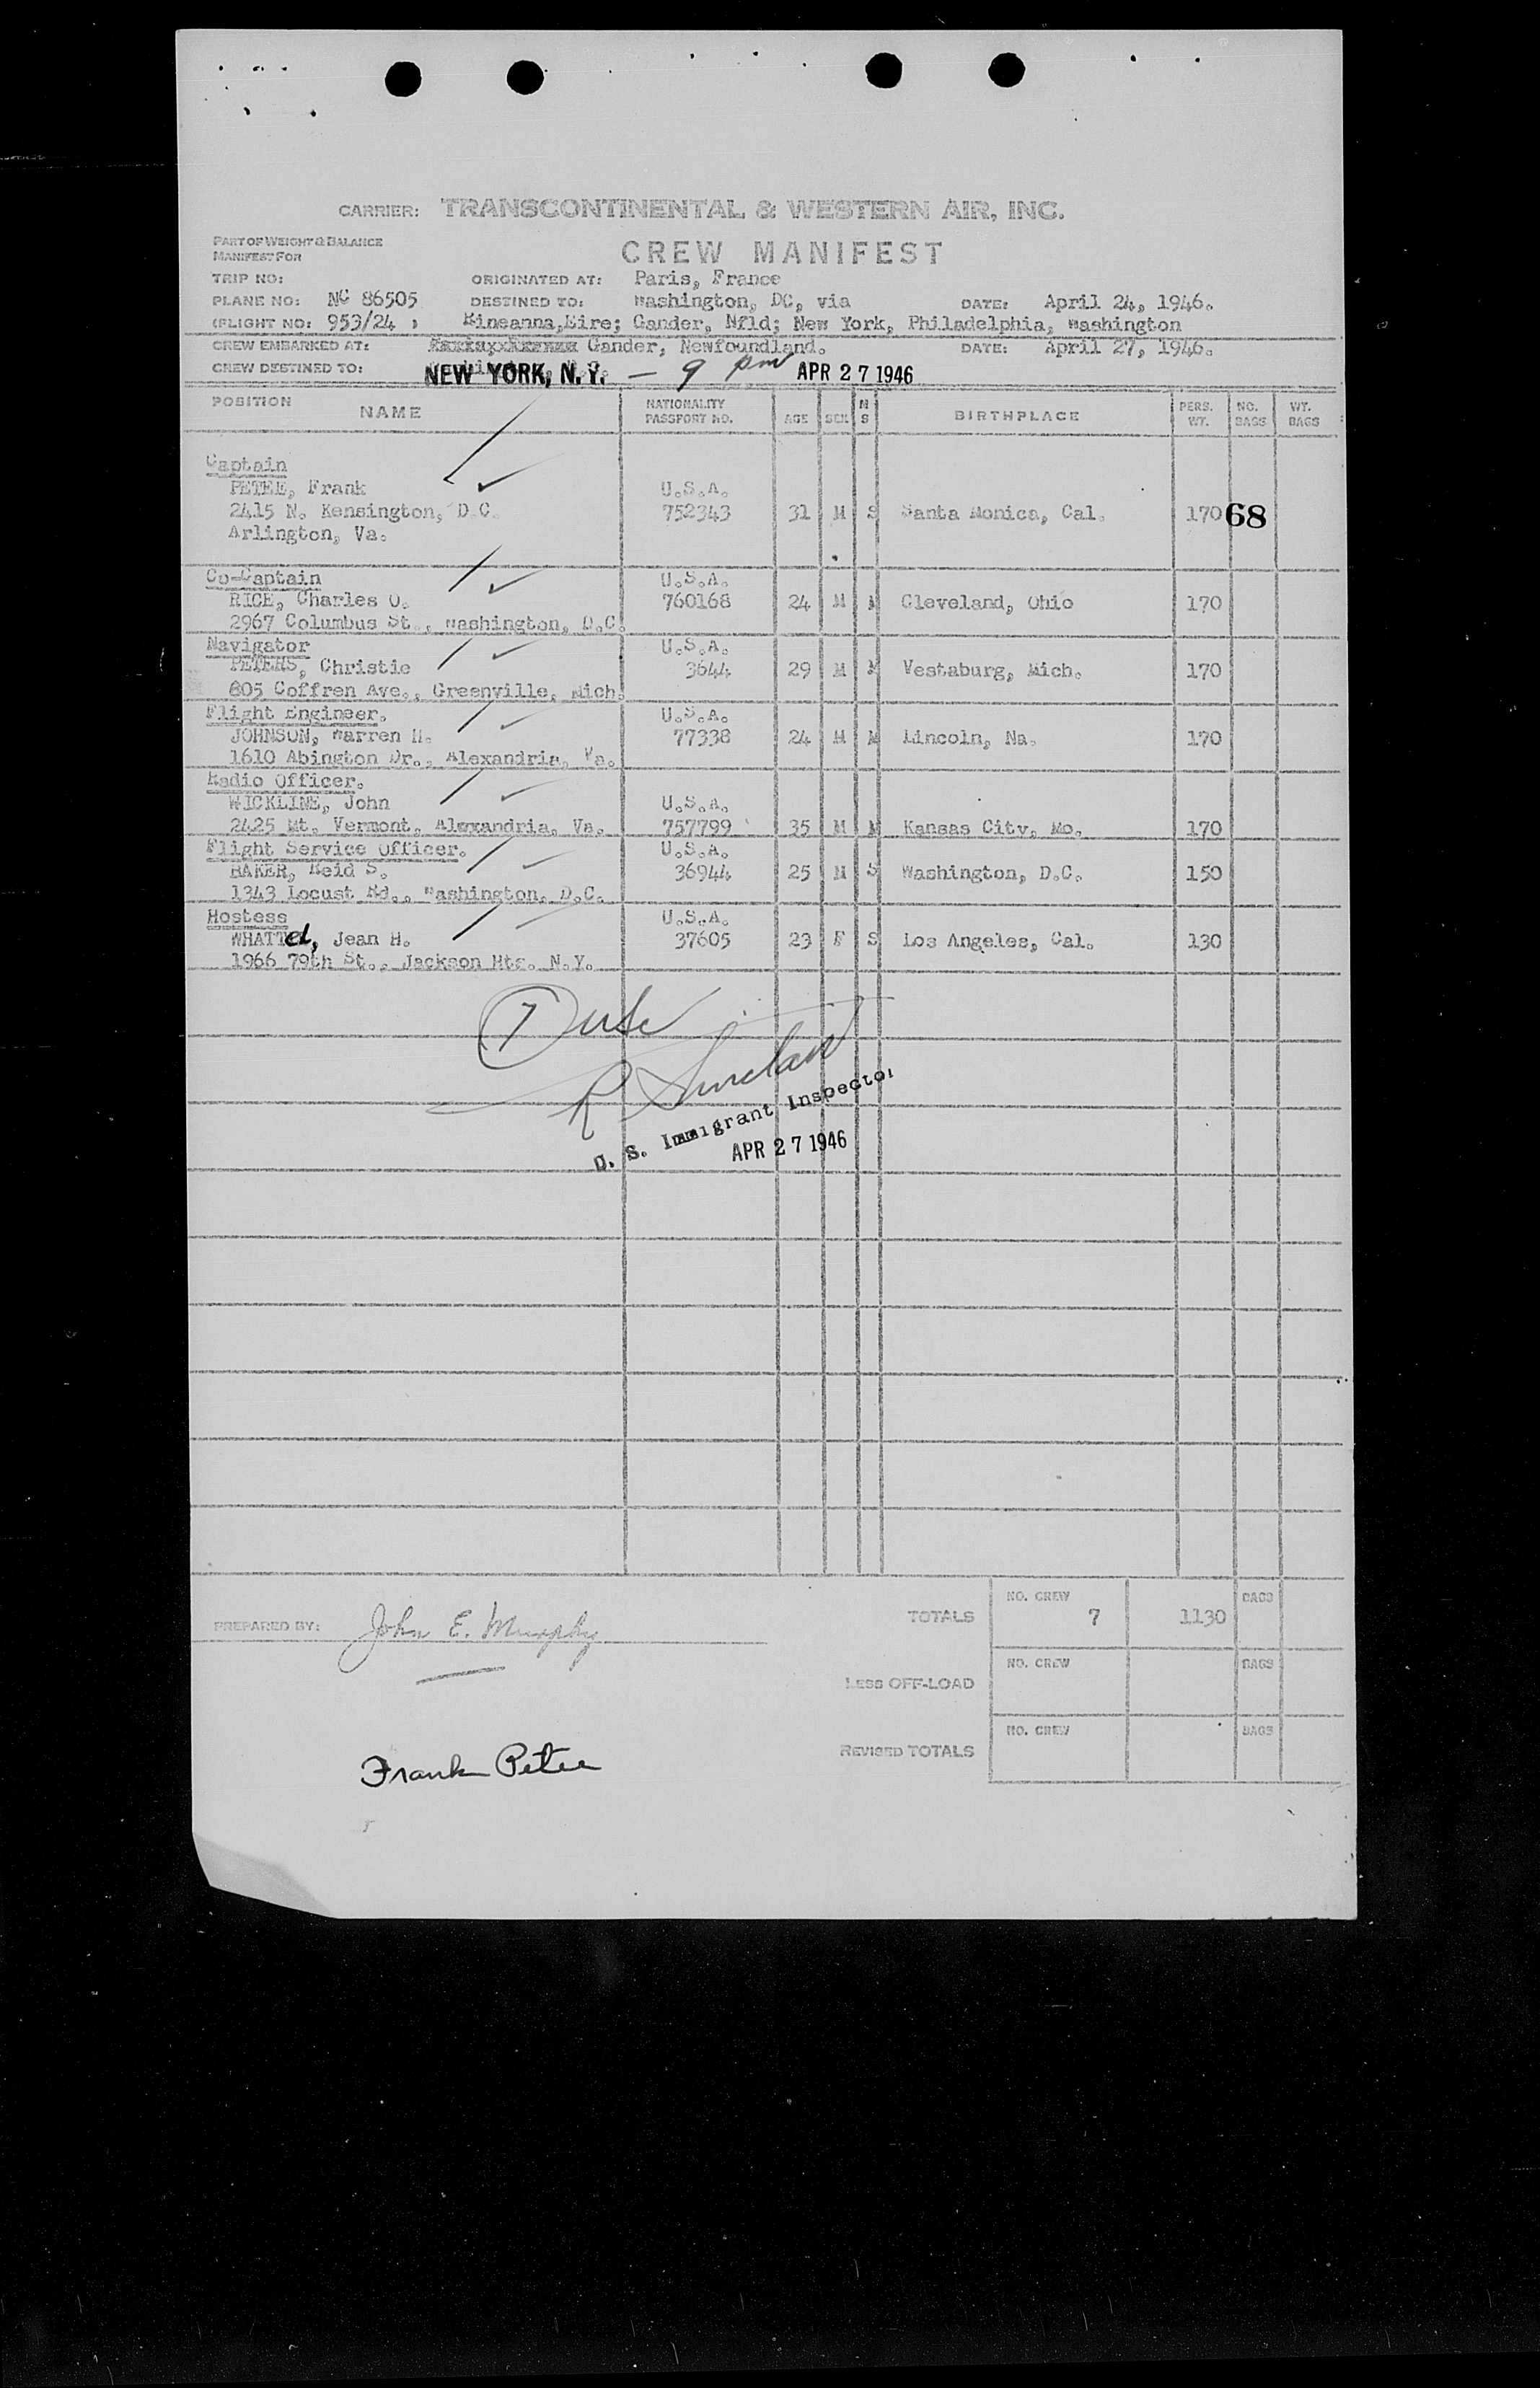 CARRIER: TRANSCONTINENTAL & WESTERN AIR, INC.
PART OF WEIGHT & BALANCE
MANIFEST FOR
CREW MANIFEST
TRIP NO: ORIGINATED AT: Paris, France
PLANE NO: NC 86505 DESTINED TO: Washington, DC, via DATE: April 24, 1946.
(FLIGHT NO: 953/24 ) Rineanna,Eire; Gander, Nfld; New York, Philadelphia, Washington
CREW EMBARKED AT: Gander, Newfoundland. DATE: April 27, 1946.
CREW DESTINED TO: NEW YORK, N.Y. — 9 pm APR 27 1946
POSITION NAME NATIONALITY PASSPORT NO. AGE SEX M S BIRTHPLACE PERS. WT. NO. BAGS WT. BAGS
Captain
PETEE, Frank U.S.A.
2415 N. Kensington, D.C. 752343 31 M S Santa Monica, Cal. 170 68
Arlington, Va.
Co-Captain U.S.A.
RICE, Charles O. 760168 24 M M Cleveland, Ohio 170
2967 Columbus St., Washington, D.C.
Navigator U.S.A.
PETERS, Christie 3644 29 M M Vestaburg, Mich. 170
805 Coffren Ave., Greenville, Mich.
Flight Engineer. U.S.A.
JOHNSON, Warren H. 77338 24 M M Lincoln, Na. 170
1610 Abington Dr., Alexandria, Va.
Radio Officer.
WICKLINE, John U.S.A.
2425 Mt. Vermont, Alexandria, Va. 757799 35 M M Kansas City, Mo. 170
Flight Service Officer. U.S.A.
BAKER, Reid S. 36944 25 M S Washington, D.C. 150
1343 Locust Rd., Washington, D.C.
Hostess U.S.A.
WHATTel, Jean H. 37605 23 F S Los Angeles, Cal. 130
1966 79th St., Jackson Hts. N.Y.
7 USC
R Sinclair
U. S. Immigrant Inspector
APR 27 1946
PREPARED BY: John E. Murphy TOTALS NO. CREW 7 1130 BAGS
LESS OFF-LOAD NO. CREW BAGS
REVISED TOTALS NO. CREW BAGS
Frank Petee